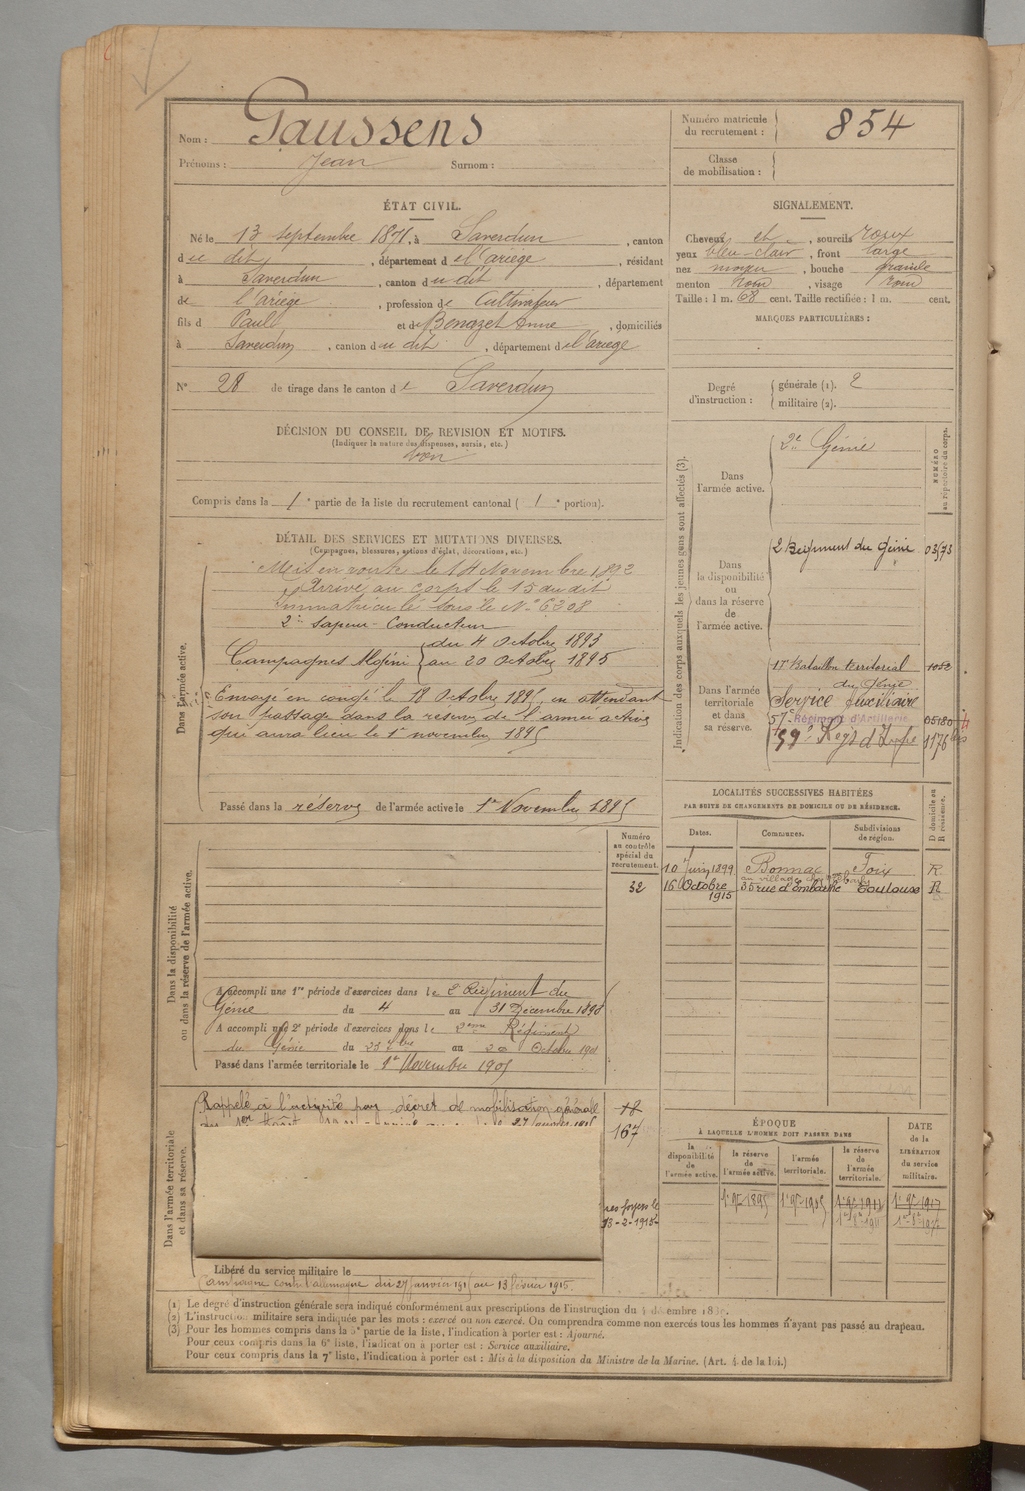 Nom : Gaussens
Prénoms : Jean Surnom :
Numéro matricule du recrutement : 854
Classe de mobilisation :
ÉTAT CIVIL.
Né le 13 septembre 1871, à Saverdun, canton
du dit, département de l'ariège, résidant
à Saverdun, canton du dit, département
de l'ariège, profession de Cultivateur
fils de Paul et de Benazet Anne, domiciliés
à Saverdun, canton du dit, département de l'ariège
N° 28 de tirage dans le canton de Saverdun
SIGNALEMENT.
Cheveux et, sourcils roux
yeux bleu-clair, front large
nez moyen, bouche grande
menton rond, visage rond
Taille : 1 m. 68 cent. Taille rectifiée : 1 m. cent.
MARQUES PARTICULIÈRES :
Degré d'instruction : générale (1). 2
militaire (2).
DÉCISION DU CONSEIL DE REVISION ET MOTIFS.
(Indiquer la nature des dispenses, sursis, etc.)
bon
Compris dans la 1e partie de la liste du recrutement cantonal ( 1e portion).
DÉTAIL DES SERVICES ET MUTATIONS DIVERSES.
(Campagnes, blessures, actions d'éclat, décorations, etc.)
Dans l'armée active.
Mis en route le 14 Novembre 1892
Arrivé au corps le 15 du dit
Immatriculé sous le N° 6308
2e Sapeur-Conducteur
Campagnes Algérie du 4 Octobre 1893
au 20 Octobre 1895
Envoyé en congé le 18 Octobre 1895, en attendant
son passage dans la réserve de l'armée active
qui aura lieu le 1er novembre 1895
Passé dans la réserve de l'armée active le 1er Novembre 1895
Indication des corps auxquels les jeunes gens sont affectés (3).
NUMÉRO au répertoire du corps.
Dans l'armée active.
2e Génie
Dans la disponibilité ou dans la réserve de l'armée active.
2 Régiment du Génie
Dans l'armée territoriale et dans sa réserve.
17e Bataillon territorial 1052
du Génie
Service Auxiliaire
57e Régiment d'Artillerie 05180
59e Regt d'Infie 1176 bis
LOCALITÉS SUCCESSIVES HABITÉES
PAR SUITE DE CHANGEMENTS DE DOMICILE OU DE RÉSIDENCE.
Dates. Communes. Subdivisions de région. D domicile ou R résidence.
10 Juin 1899 Bonnac Foix R
16 Octobre 1915 35 rue d'Embarthe Toulouse R
Numéro au contrôle spécial du recrutement.
32
Dans la disponibilité ou dans la réserve de l'armée active.
A accompli une 1re période d'exercices dans le 2 Régiment du
Génie du 4 au 31 Décembre 1898
A accompli une 2e période d'exercices dans le 2eme Régiment
du Génie du 23 7bre au 20 Octobre 1901
Passé dans l'armée territoriale le 1er Novembre 1905
Dans l'armée territoriale et dans sa réserve.
Rappelé à l'activité par décret de mobilisation générale
27 janvier 1915
18
167
ses foyers le
13-2-1915
Libéré du service militaire le
Campagne contre l'allemagne du 27 janvier 1915 au 13 février 1915.
ÉPOQUE
À LAQUELLE L'HOMME DOIT PASSER DANS
la disponibilité de l'armée active. la réserve de l'armée active. l'armée territoriale. la réserve de l'armée territoriale.
DATE de la LIBÉRATION du service militaire.
1er 9bre 1895 1er 9bre 1905 1er 9bre 1911 1er 9bre 1917
(1) Le degré d'instruction générale sera indiqué conformément aux prescriptions de l'instruction du 4 décembre
(2) L'instruction militaire sera indiquée par les mots : exercé ou non exercé. On comprendra comme non exercés tous les hommes n'ayant pas passé au drapeau.
(3) Pour les hommes compris dans la 5e partie de la liste, l'indication à porter est : Ajourné.
Pour ceux compris dans la 6e liste, l'indication à porter est : Service auxiliaire.
Pour ceux compris dans la 7e liste, l'indication à porter est : Mis à la disposition du Ministre de la Marine. (Art. 4 de la loi.)